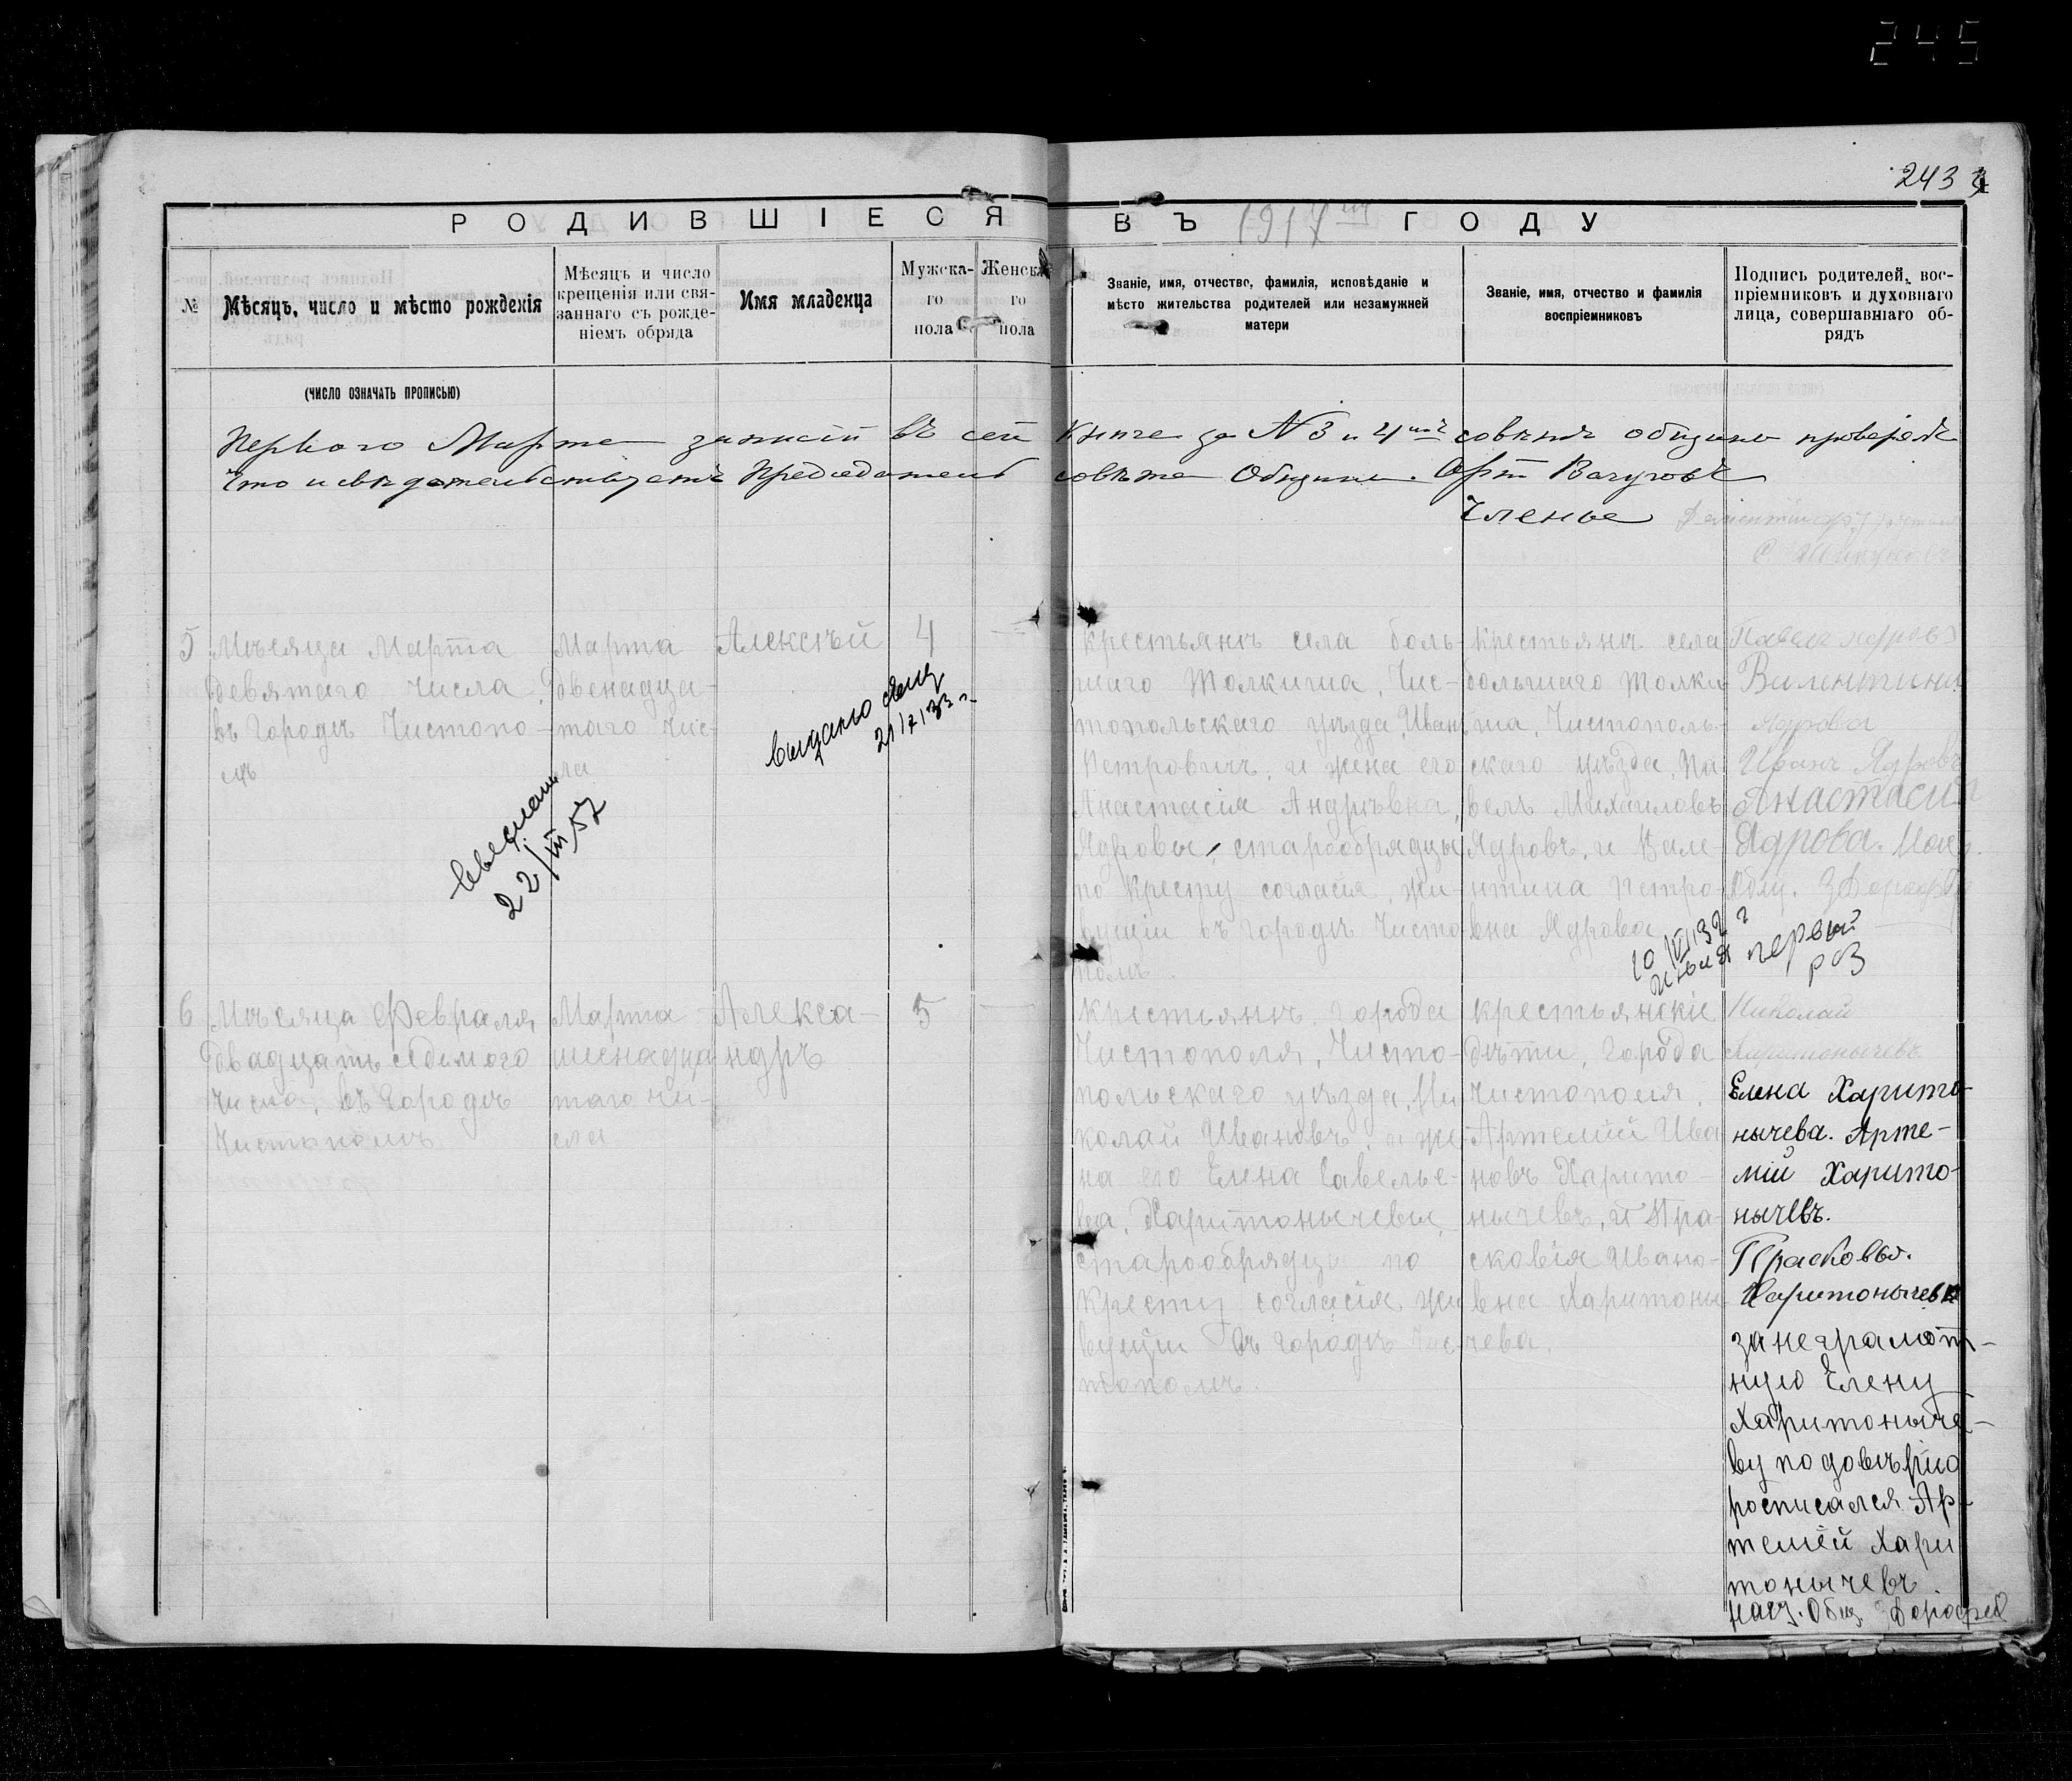 245
243
РОДИВШІЕСЯ ВЪ 1917 ГОДУ
№
Мѣсяцъ, число и мѣсто рожденія
Мѣсяцъ и число
крещенія или свя-
заннаго съ рожде-
ніемъ обряда
Имя младенца
Мужска-
го
пола
Женска
го
пола
Званіе, имя, отчество, фамилія, исповѣданіе и
мѣсто жительства родителей или незамужней
матери
Званіе, имя, отчество и фамилія
воспріемниковъ
Подпись родителей, вос-
пріемниковъ и духовнаго
лица, совершавшаго об-
рядъ
(ЧИСЛО ОЗНАЧАТЬ ПРОПИСЬЮ)
Первого Марта записи въ сей книге за № 3 и 4 советъ общины
что и свидетельствуетъ Председатель совета Общины.
Члены
5
Мѣсяца Марта
девятаго числа,
въ городѣ Чистопо-
лѣ
Марта
двенадца-
таго чис-
ла
Алексѣй
4
выдано
22/III 57
крестьянъ села боль-
шаго Толкиша, Чис-
топольскаго уѣзда, Иванъ
Петровичъ, и жена его
Анастасія Андрѣвна,
Ядровы, старообрядцы
по кресту согласія, жи-
вущіи въ городѣ Чисто-
полѣ.
крестьянъ села
большаго Толки-
ша, Чистополь-
скаго уѣзда, Па-
велъ Михаиловъ
Ядровъ, и Вале-
нтина Петро-
вна Ядрова
Павелъ Ядровъ
Валентина
Ядрова
Иванъ Ядровъ
Анастасия
Ядрова.
первый
раз
6
Мѣсяца Февраля
двадцать седьмого
числа, въ городѣ
Чистополѣ
Марта
шеснадца-
таго чи-
сла
Алекса-
ндръ
5
крестьянъ города
Чистополя, Чисто-
польскаго уѣзда, Ни-
колай Ивановъ, и же-
на его Елена Савелье-
ва, Харитонычевы,
старообрядцы по
кресту согласія, жи-
вущіи въ городѣ Чис-
тополѣ.
крестьянскіе
дѣти, города
Чистополя,
Артемій Ива-
новъ Харито-
нычевъ, и Пра-
сковія Ивано-
вна Харитоны-
чева.
Николай
Харитонычевъ
Елена Харито-
нычева. Арте-
мій Харито-
нычевъ.
Прасковья.
Харитонычева
за неграмот-
ную Елену
Харитоныче-
ву по довѣрію
росписался Ар-
темей Хари
тонычевъ.